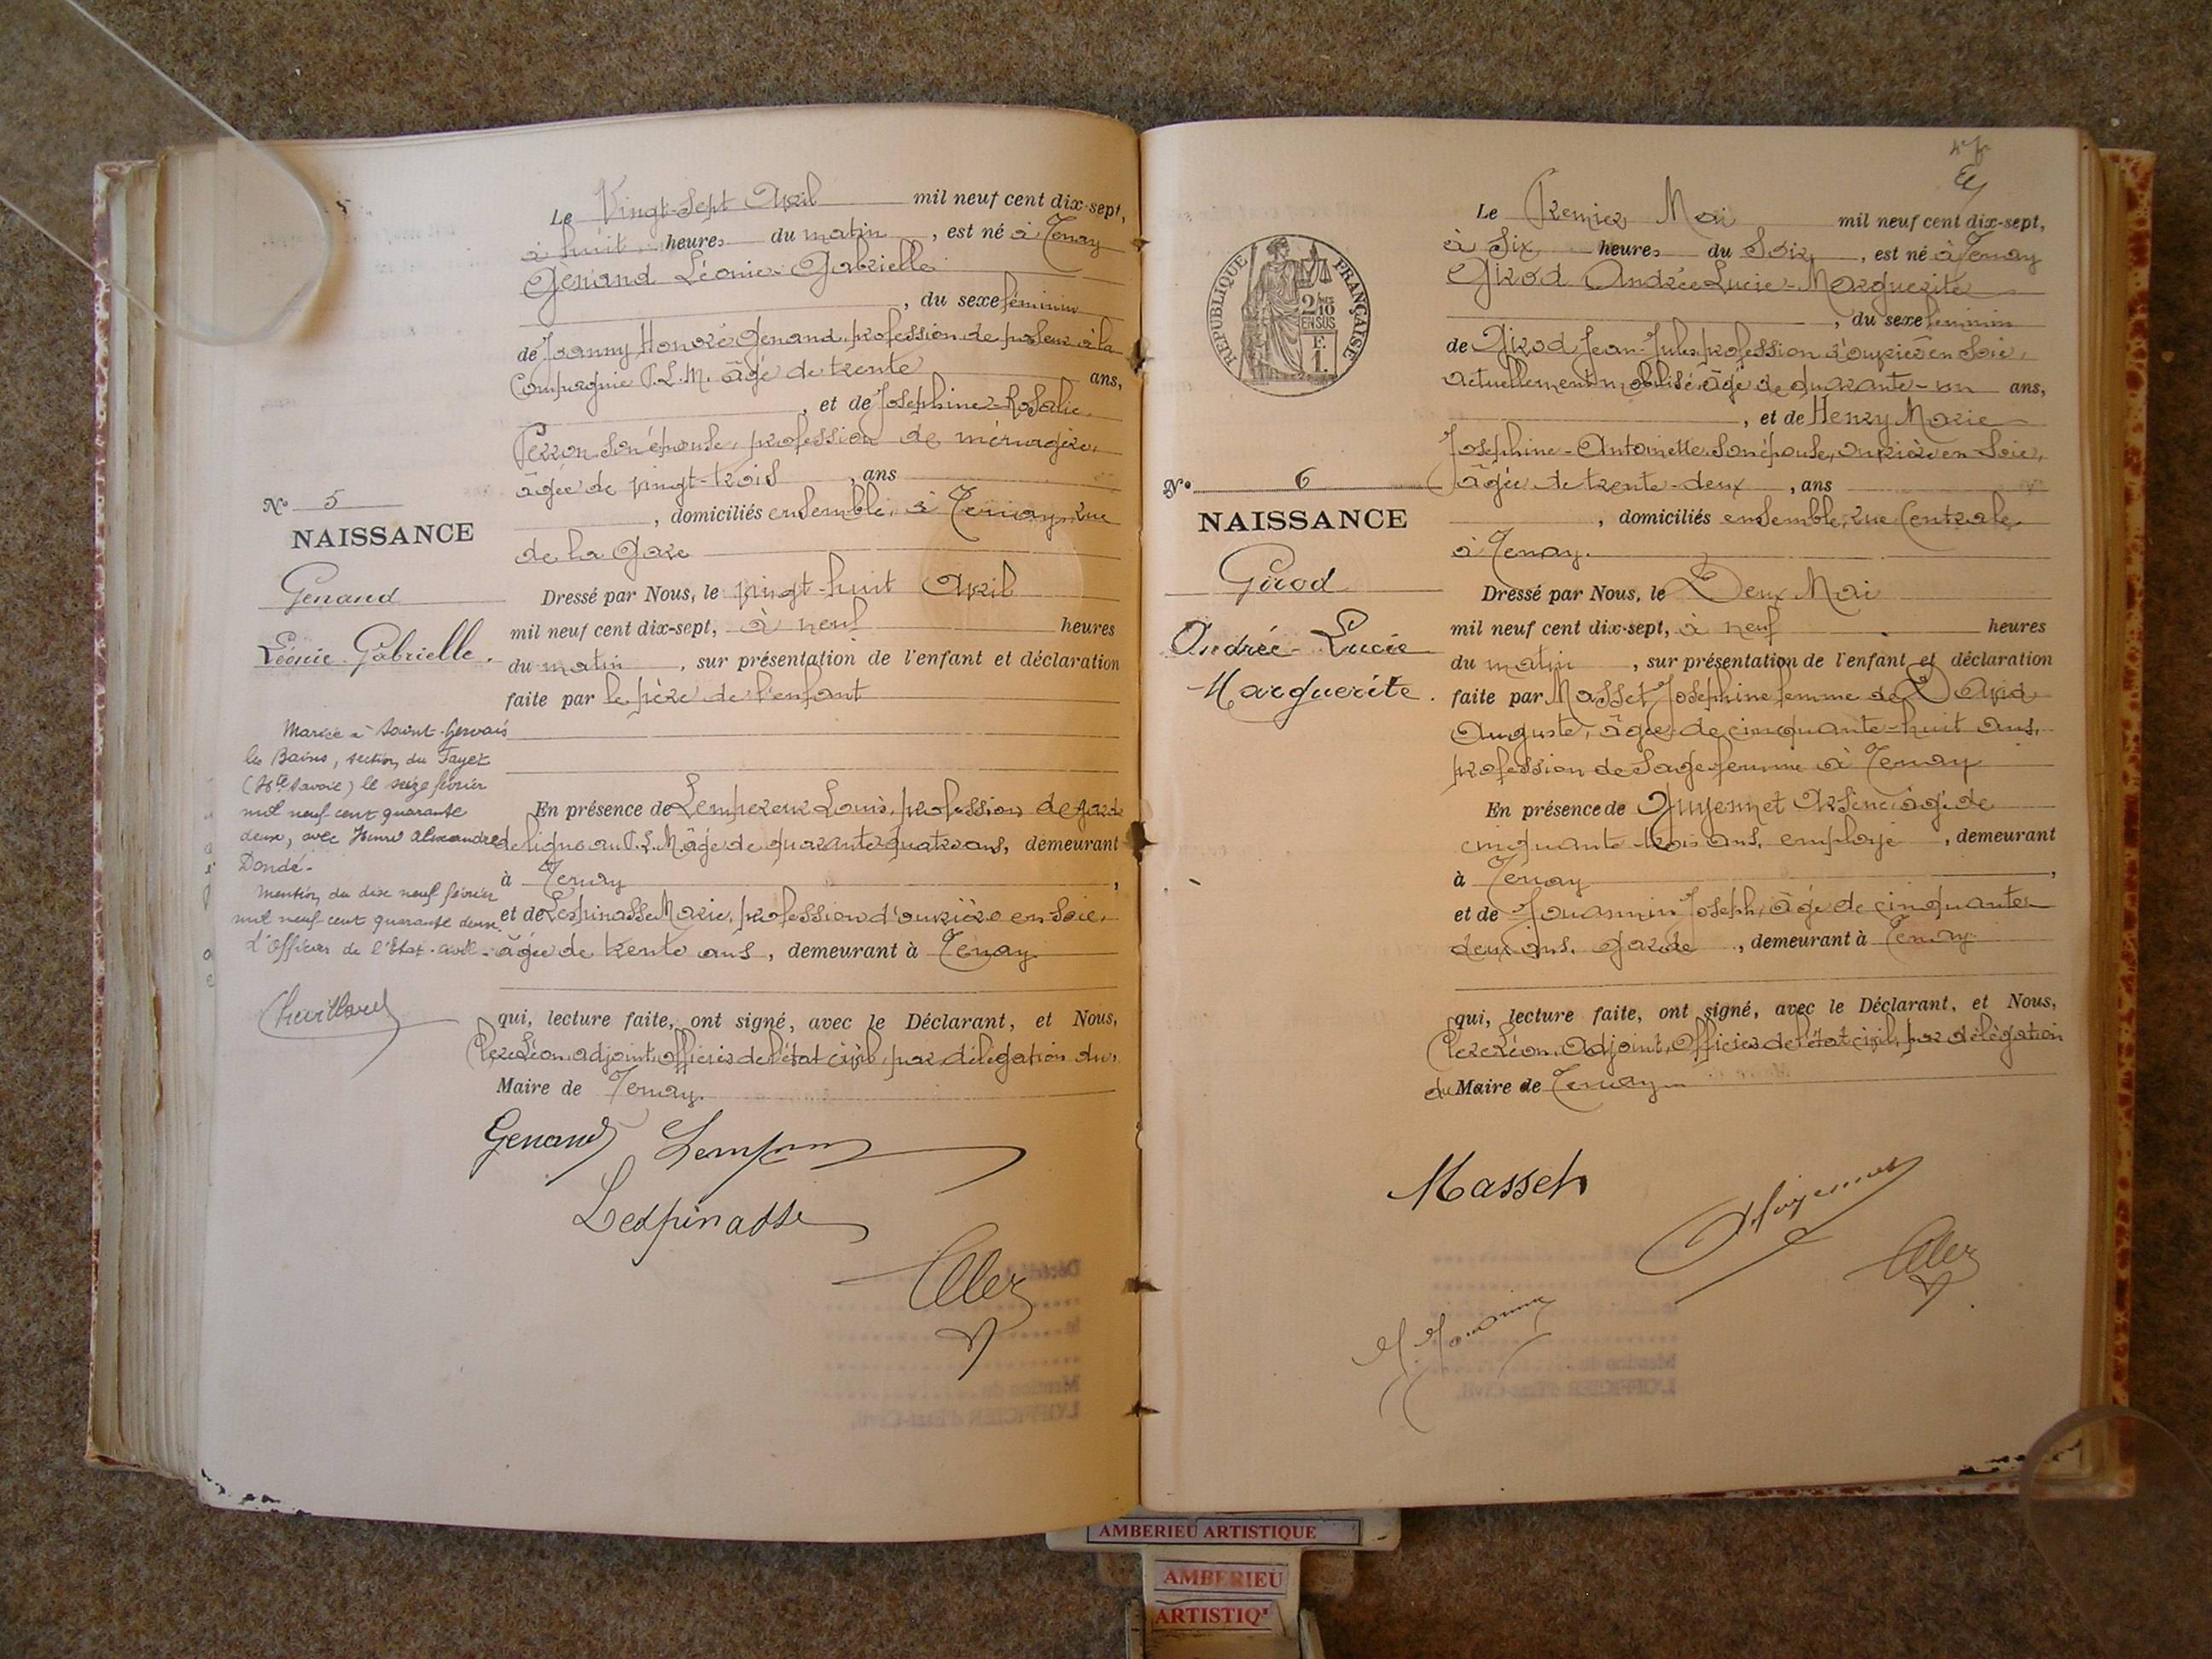 Le Vingt-Sept Avril mil neuf cent dix-sept,
à huit heures du matin, est né à Tenay
Genand Léonie-Gabrielle
, du sexe féminin
de Joanny Honoré Genand, profession de poseur à la
Compagnie P.L.M. âgé de trente ans,
, et de Josephine-Rosalie
Perron son épouse, profession de ménagère,
âgée de vingt-trois, ans
, domiciliés ensemble, à Tenay, rue
de la Gare
Dressé par Nous, le vingt-huit Avril
mil neuf cent dix-sept, à neuf heures
du matin, sur présentation de l'enfant et déclaration
faite par le père de l'enfant
En présence de Lempereur Louis, profession de garde
de ligne au P.L.M. âgé de quarante-quatre ans, demeurant
à Tenay,
et de Lespinasse Marie, profession d'ouvrière en soie,
âgée de trente ans, demeurant à Tenay
qui, lecture faite, ont signé, avec le Déclarant, et Nous,
Clerc Léon, adjoint, officier de l'état civil, par délégation du
Maire de Tenay.
Genand
Lespinasse
No 5
NAISSANCE
Genand
Léonie-Gabrielle.
Mariée à Saint-Gervais
les Bains, section du Fayet
(Hte Savoie) le seize février
mil neuf cent quarante
deux, avec Henri Alexandre
Dondé.
Mention du dix neuf février
mil neuf cent quarante deux.
L'Officier de l'Etat-civil.
Le Premier Mai mil neuf cent dix-sept,
à Six heures du Soir, est né à Tenay
Girod Andrée-Lucie-Marguerite
, du sexe féminin
de Girod Jean-Jules, profession d'ouvrier en soie,
actuellement mobilisé âgé de quarante-un ans,
, et de Henry Marie
Josephine-Antoinette, son épouse, ouvrière en soie,
âgée de trente-deux, ans
, domiciliés ensemble, rue Centrale
à Tenay.
Dressé par Nous, le Deux Mai
mil neuf cent dix-sept, à neuf heures
du matin, sur présentation de l'enfant et déclaration
faite par Masset Josephine femme de David
Auguste, âgée de cinquante-huit ans,
profession de Sage-femme à Tenay
En présence de Guyennet Arsène âgé de
cinquante-trois ans, employé, demeurant
à Tenay,
et de Jouannin Joseph, âgé de cinquante-
deux ans, garde, demeurant à Tenay
qui, lecture faite, ont signé, avec le Déclarant, et Nous,
Clerc Léon, Adjoint, Officier de l'état civil, par délégation
du Maire de Tenay
Masset
RÉPUBLIQUE FRANÇAISE
2/10
EN SUS
F.
1.
No 6
NAISSANCE
Girod
Andrée-Lucie
Marguerite.
AMBERIEU ARTISTIQUE
AMBERIEU
ARTISTIQ